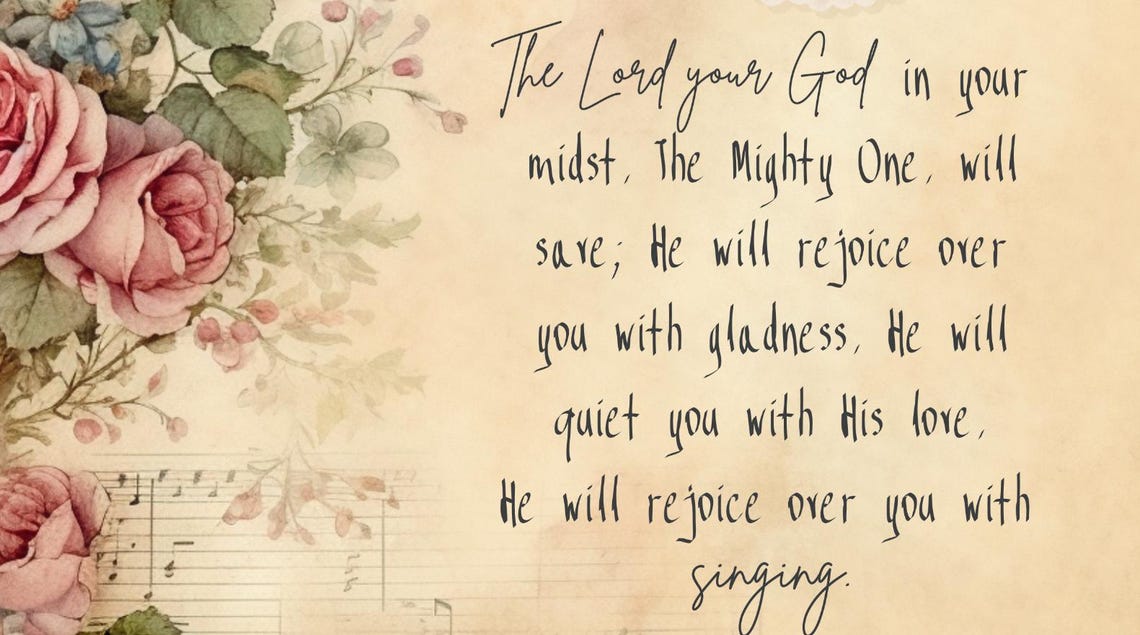 The Lord your God in your
midst, The Mighty One, will
save; He will rejoice over
you with gladness, He will
quiet you with His love,
He will rejoice over you with
singing.